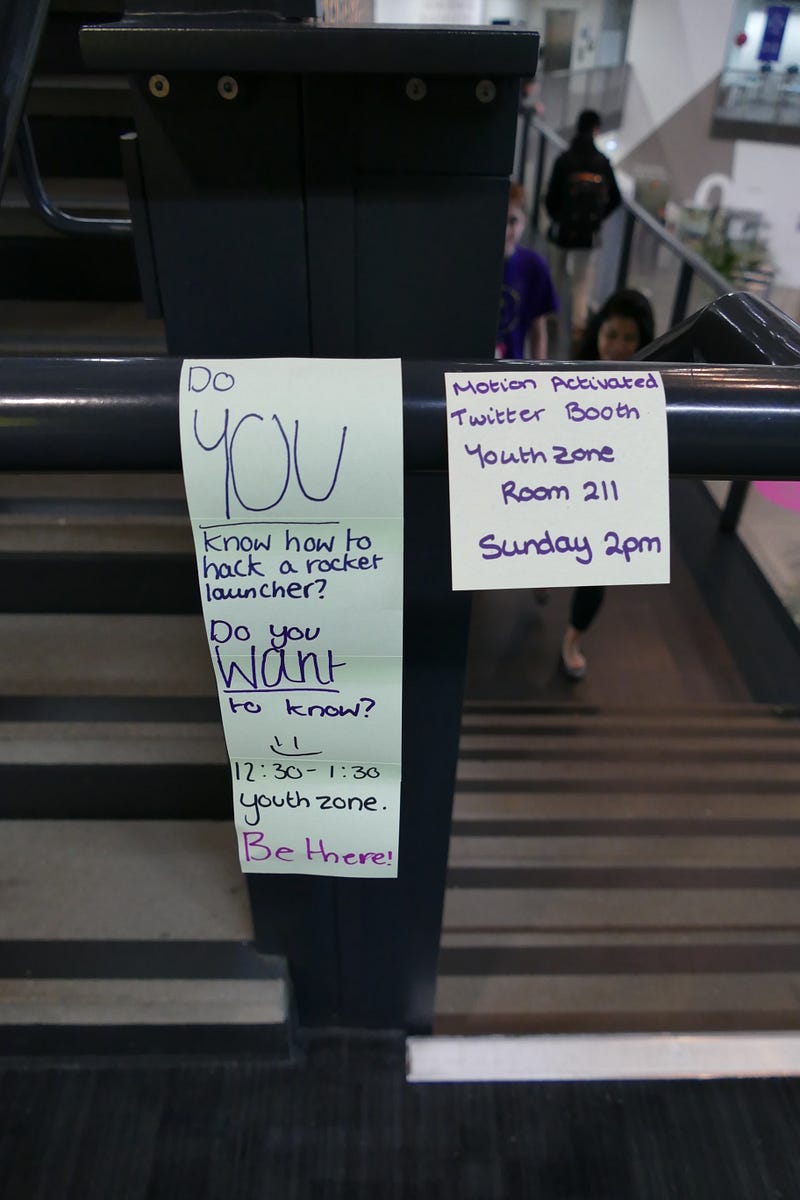 Do
YOU
Know how to
hack a rocket
launcher?
Do you
Want
to know?
12:30-1:30
youth zone.
Be there!
Motion Activated
Twitter Booth
Youth zone
Room 211
Sunday 2pm